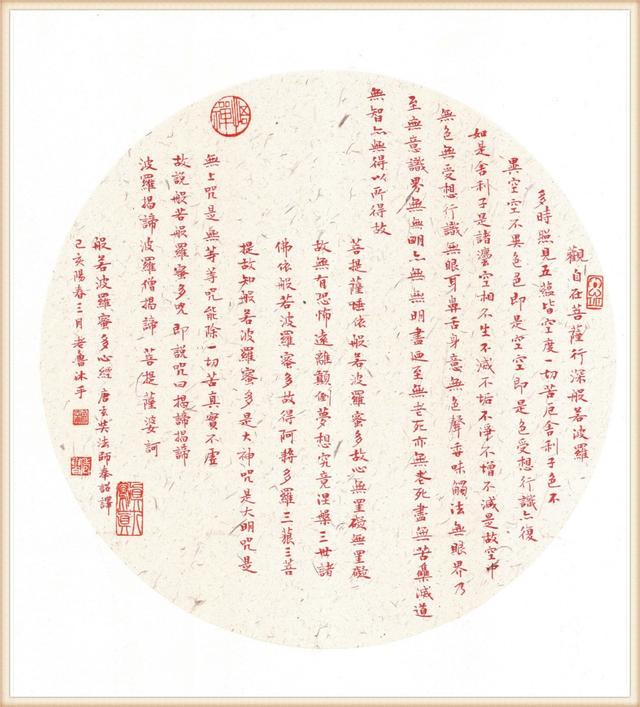 觀自在菩薩行深般若波羅
多時照見五蘊皆空度一切苦厄舍利子色不
異空空不異色色即是空空即是色受想行識亦復
如是舍利子是諸灋空相不生不滅不垢不淨不增不減是故空中
無色無受想行識無眼耳鼻舌身意無色聲香味觸法無眼界乃
至無意識界無無明亦無無明盡迺至無老死亦無老死盡無苦集滅道
無智亦無得以所得故
菩提薩埵依般若波羅蜜多故心無罣礙無罣礙
故無有恐怖遠離顛倒夢想究竟涅槃三世諸
佛依般若波羅蜜多故得阿耨多羅三藐三菩
提故知般若波羅蜜多是大神咒是大明咒是
無上咒是無等等咒能除一切苦真實不虛
故説般若般羅蜜多咒即説咒曰揭諦揭諦
波羅揭諦波羅僧揭諦 菩提薩婆訶
般若波羅蜜多心經 唐玄奘法師奉詔譯
己亥陽春三月老魯沐手
悟禪